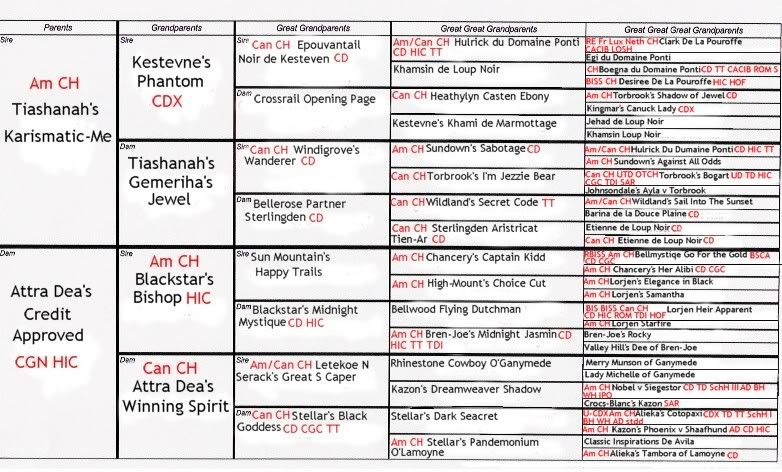 Parents
Grandparents
Great Grandparents
Great Great Grandparents
Great Great Great Grandparents
Sire
Am CH
Tiashanah's
Karismatic-Me
Dam
Attra Dea's
Credit
Approved
CGN HIC
Sire
Kestevne's
Phantom
CDX
Dam
Tiashanah's
Gemeriha's
Jewel
Sire
Am CH
Blackstar's
Bishop HIC
Dam
Can CH
Attra Dea's
Winning Spirit
Sire Can CH Epouvantail
Noir de Kesteven CD
Dam Crossrail Opening Page
Sire Can CH Windigrove's
Wanderer CD
Dam Bellerose Partner
Sterlingden CD
Sire Sun Mountain's
Happy Trails
Dam Blackstar's Midnight
Mystique CD HIC
Sire Am/Can CH Letekoe N
Serack's Great S Caper
Dam Can CH Stellar's Black
Goddess CD CGC TT
Am/Can CH Hulrick du Domaine Ponti
CD HIC TT
Khamsin de Loup Noir
Can CH Heathylyn Casten Ebony
Kestevne's Khami de Marmottage
Am CH Sundown's Sabotage CD
Can CH Torbrook's I'm Jezzie Bear
Can CH Wildland's Secret Code TT
Can CH Sterlingden Aristricat
Tien-Ar CD
Am CH Chancery's Captain Kidd
Am CH High-Mount's Choice Cut
Bellwood Flying Dutchman
Am CH Bren-Joe's Midnight Jasmin CD
HIC TT TDI
Rhinestone Cowboy O'Ganymede
Kazon's Dreamweaver Shadow
Stellar's Dark Seacret
Am CH Stellar's Pandemonium
O'Lamoyne
RE Fr Lux Neth CH Clark De La Pouroffe
CACIB LOSH
Egi du Domaine Ponti
CH Boegna du Domaine Ponti CD TT CACIB ROM S
BISS CH Desiree De La Pouroffe HIC HOF
Am CH Torbrook's Shadow of Jewel CD
Kingmar's Canuck Lady CDX
Jehad de Loup Noir
Khamsin Loup Noir
Am/Can CH Hulrick Du Dumaine Ponti CD HIC TT
Am CH Sundown's Against All Odds
Can CH UTD OTCH Torbrook's Bogart UD TD HIC
CGC TDI SAR
Johnsondale's Ayla v Torbrook
Am/Can CH Wildland's Sail Into The Sunset
Barina de la Douce Plaine CD
Etienne de Loup Noir CD
Can CH Etienne de Loup Noir CD
RBISS Am CH Bellmystiqe Go For the Gold BSCA
CD CGC
Am CH Chancery's Her Alibi CD CGC
Am CH Lorjen's Elegance in Black
Am CH Lorjen's Samantha
BIS BISS Can CH Lorjen Heir Apparent
CD HIC ROM TDI HOF
Am CH Lorjen Starfire
Bren-Joe's Rocky
Valley Hill's Dee of Bren-Joe
Merry Munson of Ganymede
Lady Michelle of Ganymede
Am CH Nobel v Siegestor CD TD SchH III AD BH
WH IPO
Crocs-Blanc's Kazon SAR
U-CDX Am CH Alieka's Cotopaxi CDX TD TT SchH I
BH WH AD stdd
Am CH Kazon's Phoenix v Shaafhund AD CD HIC
Classic Inspirations De Avila
Am CH Alieka's Tambora of Lamoyne CD